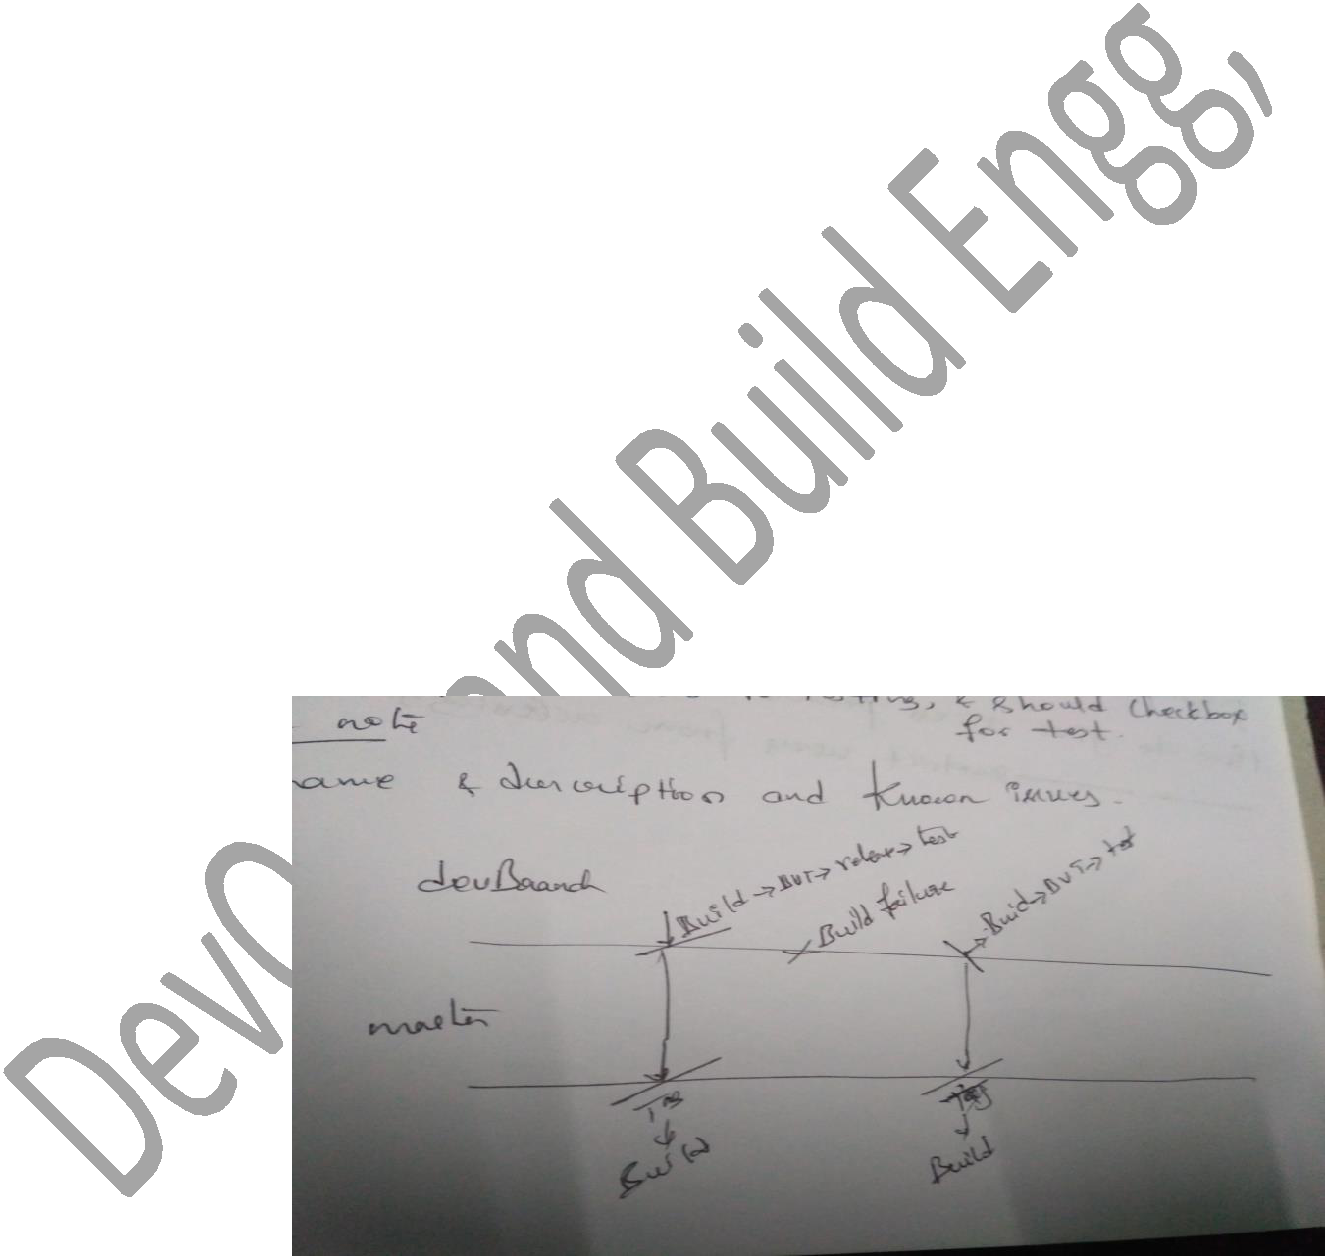 DevO and Build Engg,
testing, & should checkbox
note for test.
name & description and Known issues.
devBranch
Build → BVT → release → test
Build failure
Buid → BVT → tst
master
Tag
Tag
Build
Build